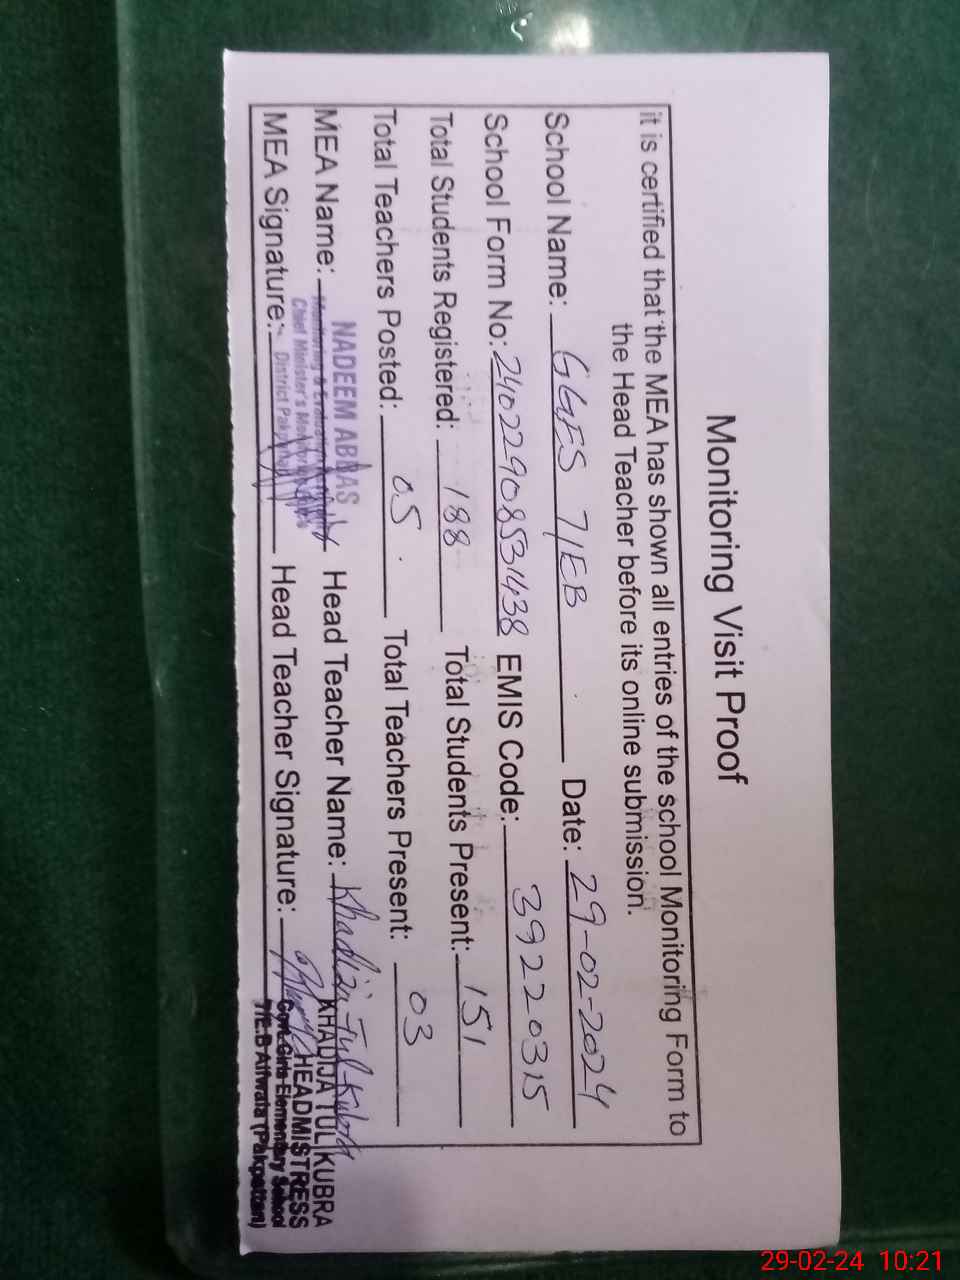 Monitoring Visit Proof
it is certified that the MEA has shown all entries of the school Monitoring Form to
the Head Teacher before its online submission.
School Name: GGES 7/EB Date: 29-02-2024
School Form No: 24022908531438 EMIS Code: 39220315
Total Students Registered: 188 Total Students Present: 151
Total Teachers Posted: 05 Total Teachers Present: 03
MEA Name: NADEEM ABBAS Head Teacher Name: Khadija-Tul-Kubra
Monitoring & Evaluation
Chief Minister's
District Pakpattan
KHADIJA TUL KUBRA
HEADMISTRESS
Govt. Girls Elementary School
7/E.B Arfwala (Pakpattan)
MEA Signature: Head Teacher Signature:
29-02-24 10:21